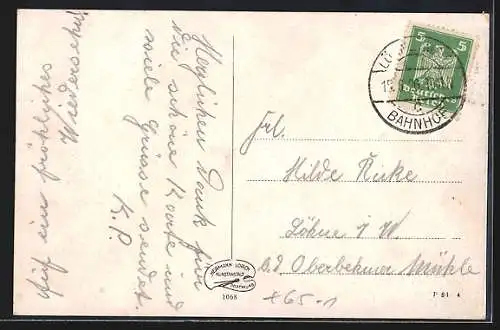 Herzlichen Dank für
die schöne Karte und
viele Grüsse sendet
K. P.
Auf ein fröhliches
Wiedersehn!
Frl.
Hilde
Löhne i. W.
b. d. Oberbehmer Mühle
+65.-1
5 5
DEUTSCHES
REICH
LÖ
BAHNHOF
HERMANN LORCH
KUNSTVERLAG
DORTMUND
1068
F 81 4